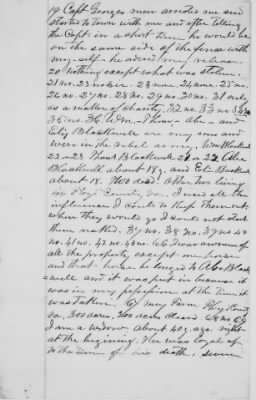 19 Capt. Georges men arrested me and
started to town with me and after telling
the Capt. in a short time he would be
on the same side of the fence with
my self he advised my release.
20 Nothing except what was stolen.
21 no. 22 no. 23 no. 24 no. 25 no.
26 no. 27 no. 28 no. 29 no. 30 no. 31 only
as a matter of charity. 32 no. 33 no 34
35 no. 36 Wm. Thos. Abe and
Eli Blackwell are my sons and
were in the rebel army, Wm Blackwell
22 or 23 Thos Blackwell 21 or 22 Abe
Blackwell about 18 y. and Eli Blackwell
about 18. Thos dead. Other two living
in Floyd County Ga. I used all the
influence I could to keep them out.
when they would go I could not start
them naked. 37 no. 38 no. 39 no 40
no. 41 no. 42 no. 43 no. 66 I was owner of
all the property except one horse
and that horse belonged to Abe Black
well and it was put in because it
was in my possession at the time it
was taken. 67 my farm Floyd County
Ga. 300 acres, 200 acres cleared 68 no 69
I am a widow, about 40 y. age. right
at the beginning. He was loyal up
to the time of his death, seven